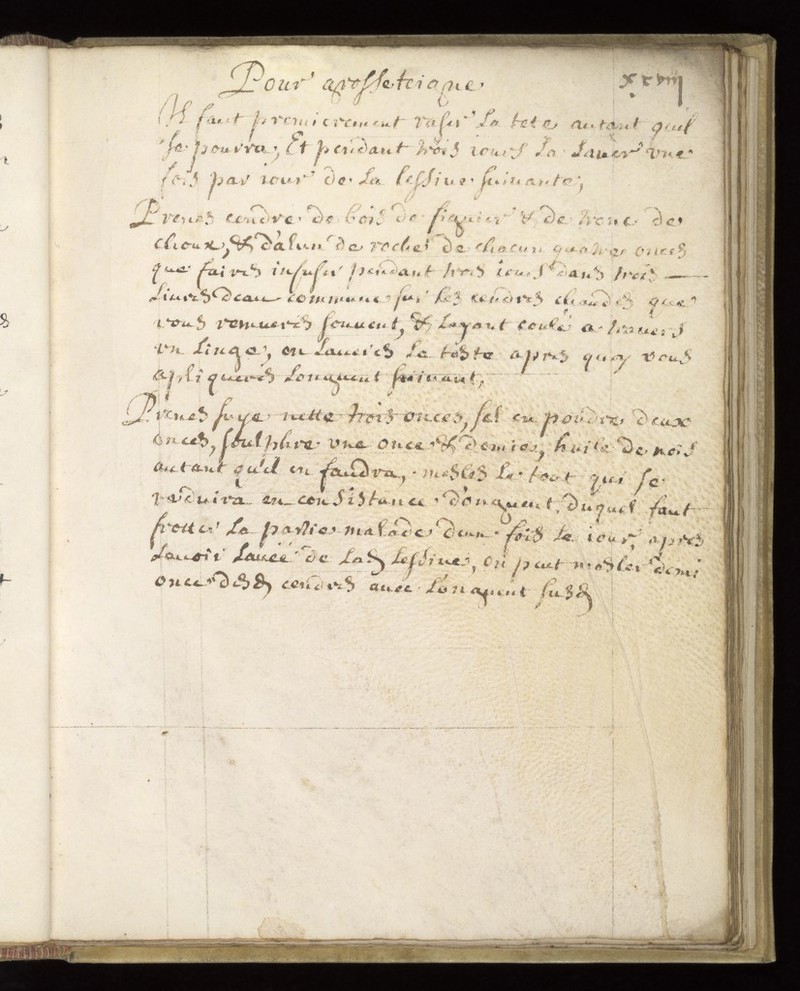 Pour grosse teigne
xxviij
Il faut premierement raser La tete autant quil
se pourra; Et pendant trois iours La Lauer vne
fois par iour de La lessiue suiuante;
Prenes cendre de bois de figuier & de tronc de
choux, & d'alun de roche de chacun quatre onces
que faires infuser pendant trois iours dans trois
Liures deau commune sur les cendres chaudes que
vous remueres souuent, & Layant coulé a trauers
vn Linge, en Laueres La teste apres quoy vous
apliqueres Longuent suiuant,
Prenes suye nette trois onces, sel en poudre deux
onces, soulphre vne once & demie, huile de nois
autant qu'il en faudra, mesles Le tout qui se
reduira en consistance d'onguent, Duquel faut
frotter La partie malade deux fois Le iour, apres
Lauoir Lauée de Lad Lessiue, on peut mesler demi
once desd cendres auec L'onguent susd